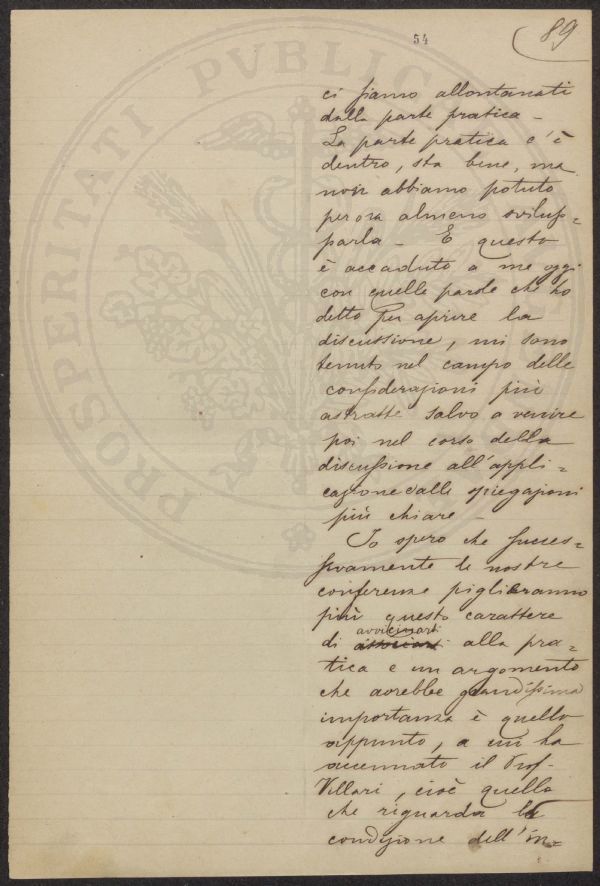 54
89
ci siamo allontanati
dalla parte pratica -
La parte pratica c'è
dentro, sta bene, ma
non abbiamo potuto
per ora almeno svilup=
parla - E questo
è accaduto a me oggi
con quelle parole che ho
detto per aprire la
discussione, mi sono
tenuto nel campo delle
considerazioni più
astratte salvo a venire
poi nel corso della
discussione all'appli=
cazione dalle spiegazioni
più chiare -
Io spero che succes=
sivamente le nostre
conferenze piglieranno
più questo carattere
di avvicinarsi alla pra=
tica e un argomento
che avrebbe grandissima
importanza è quello
appunto, a cui ha
accennato il Prof.
Villari, cioè quello
che riguarda la
condizione dell'in=
PROSPERITATI PVBLIC